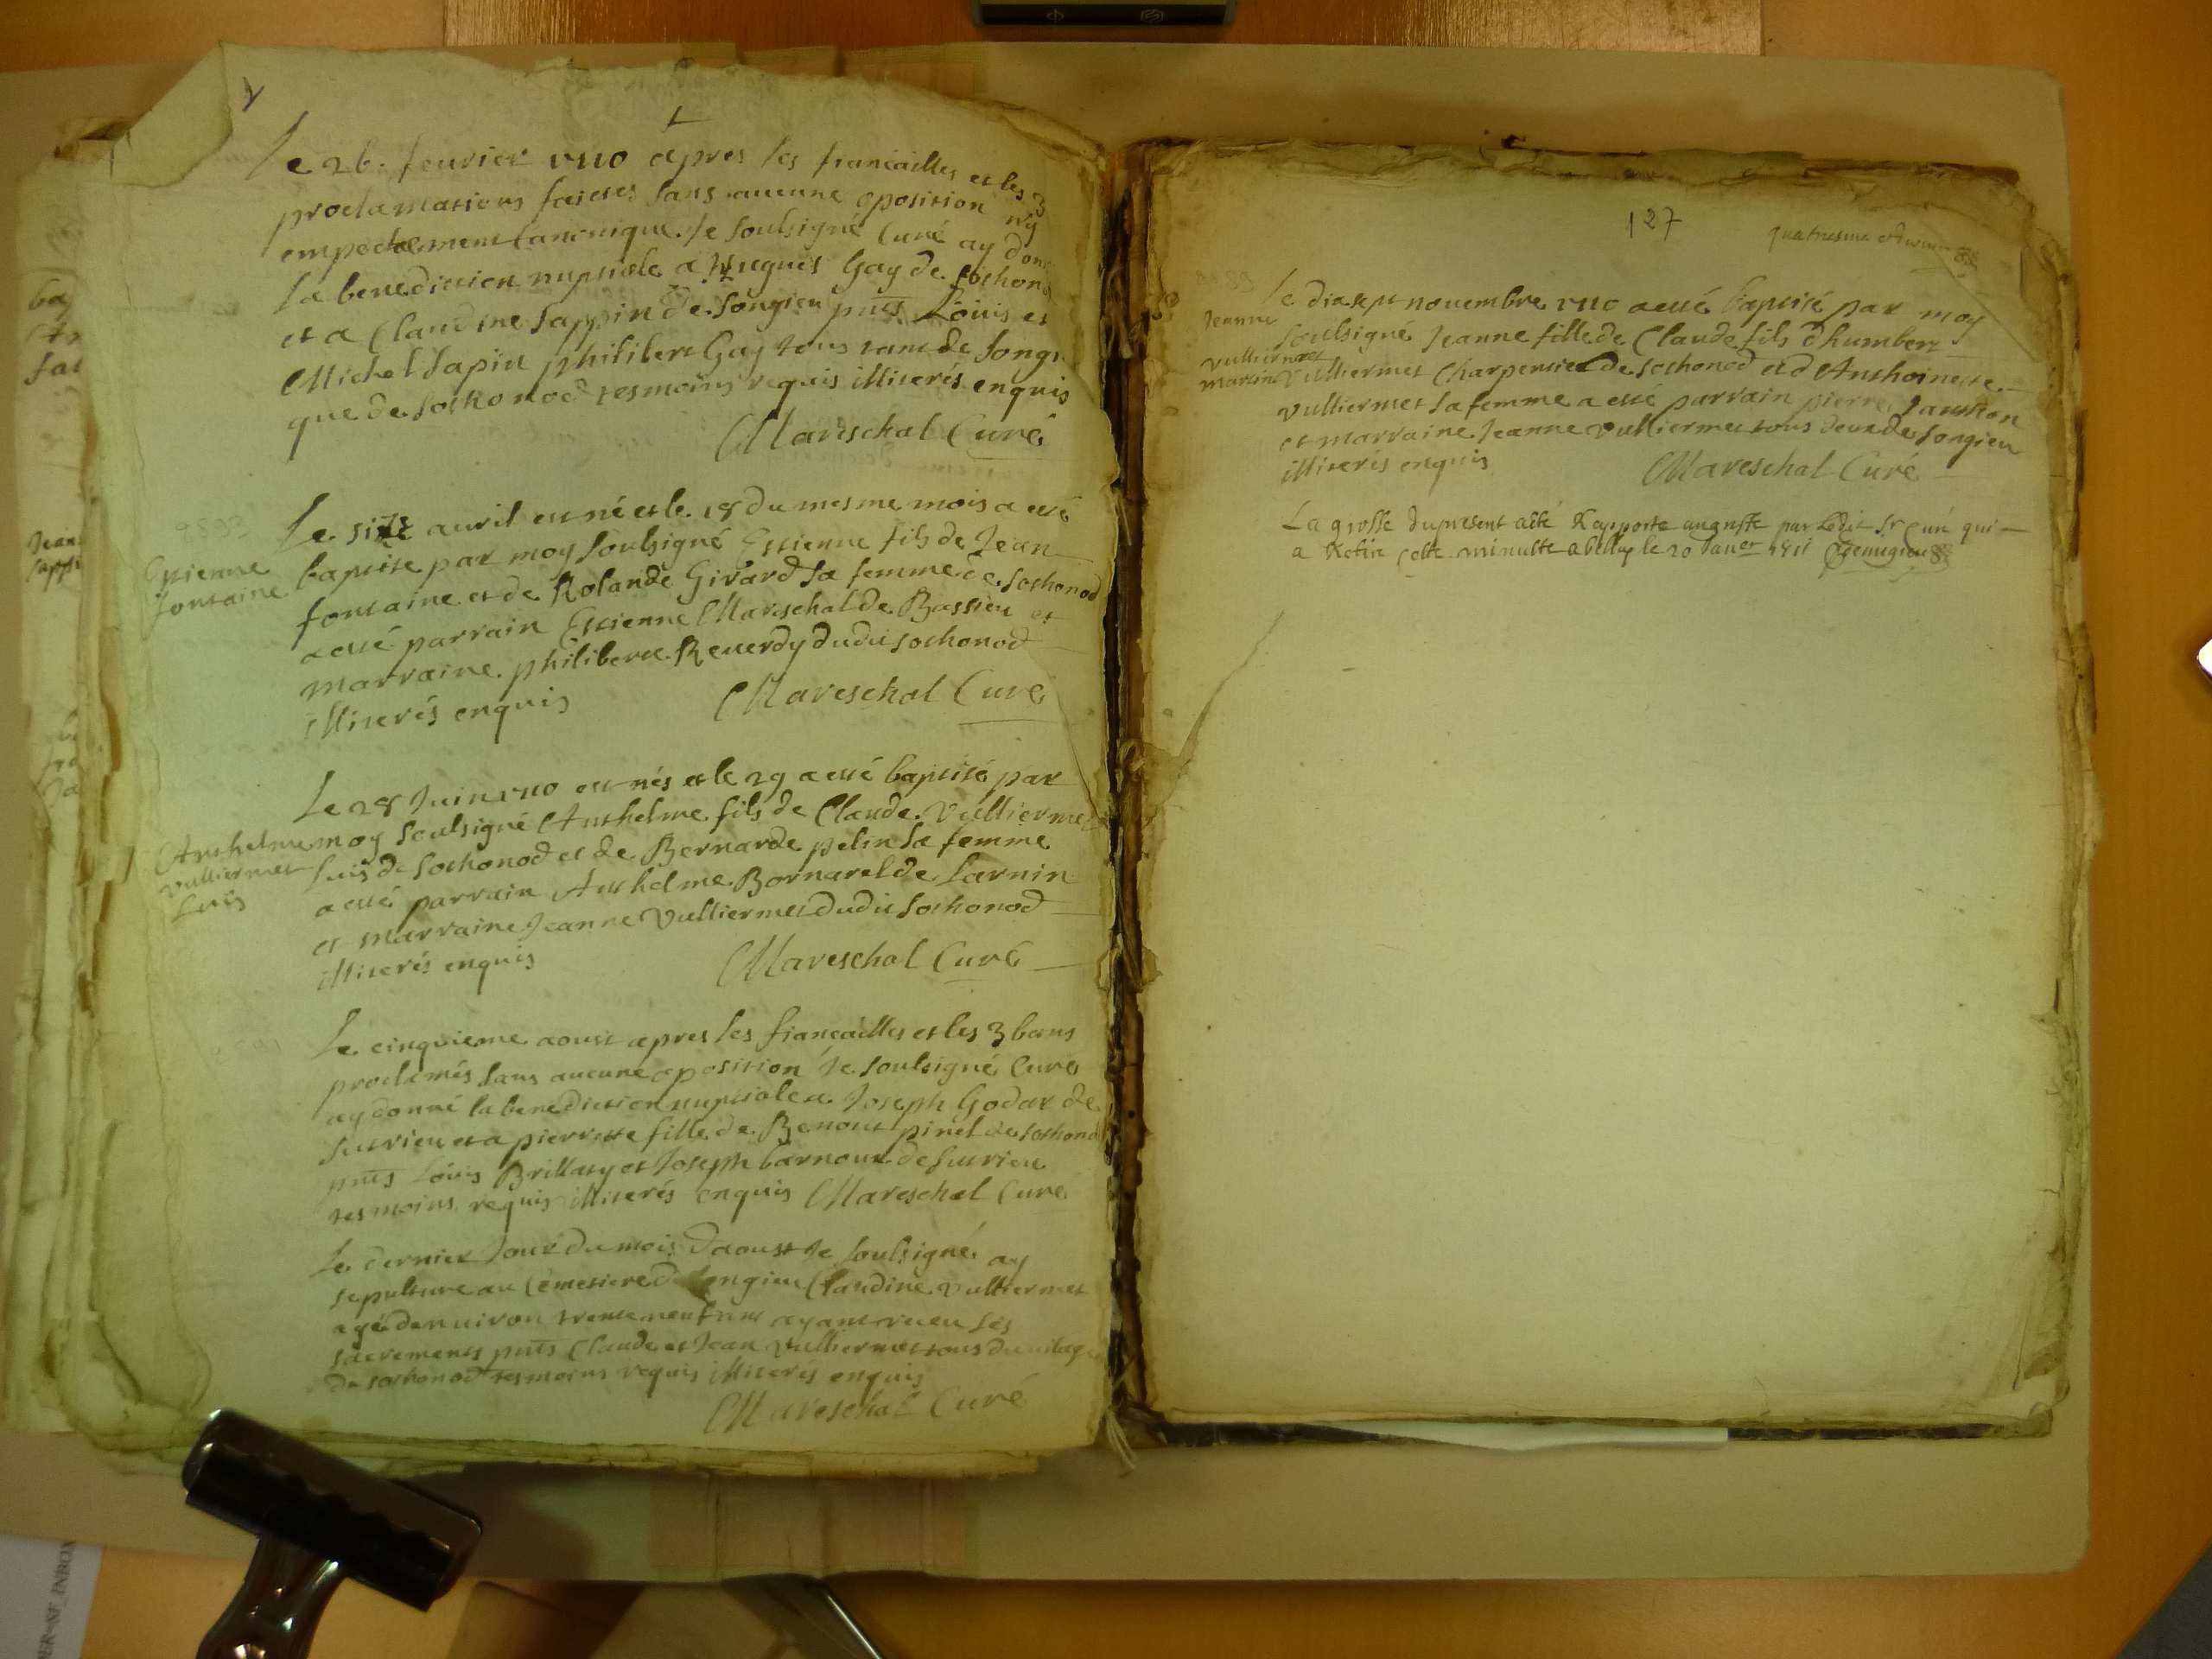 Le 26. feurier 1710 apres les fiancailles et les 3
proclamations faictes sans aucune oposition ny
empechement canonique. Je soulsigné Curé ay donn
la benediction nuptiale a Hugues Gay de sothonod
et a Claudine Sappin de Songieu pnts Loüis et
Michel Sapin philibert Gay tous tant de Songi
que de sothonod tesmoins requis illiterés enquis
Mareschal Curé
Estienne
fontaine
Le sixe auril est né et le 18 du mesme mois a esté
baptisé par moy soulsigné Estienne fils de Jean
fontaine et de Rolande Girard sa femme de sothonod
a esté parrain Estienne Mareschal de Bassieu et
marraine philiberte Reuerdy dudit sothonod
illiterés enquis
Mareschal Curé
Anthelme
vulliermet
Luis
Le 28 Juin 1710 est nés et le 29 a esté baptisé par
moy soulsigné Anthelme fils de Claude Vulliermet
Luis de sothonod et de Bernarde pelin sa femme
a esté parrain Anthelme Bornarel de Larnin
et marraine Jeanne Vulliermet dudit sothonod
illiterés enquis
Mareschal Curé
Le cinquieme aoust apres les fiancailles et les 3 bans
proclamés sans aucune oposition Je soulsigné Curé
ay donné la benediction nuptiale a Joseph Godar de
Sutrieu et a pierrette fille de Benoit pinet de sothonod
pnts Loüis Brillaty et Joseph barnoux de Sutrieu
tesmoins requis illiterés enquis Mareschal Curé
Le dernier Jour du mois daoust Je soulsigné ay
sepulture au Cemetiere de Songieu Claudine Vulliermet
agé denuiron trente neuf ans ayant receu les
sacrements pnts Claude et Jean Vulliermet tous du uilage
de sothonod tesmoins requis illiterés enquis
Mareschal Curé
127
quatriesme et dernier
Jeanne
vulliermet
martin
Le dixsept nouembre 1710 a esté baptisé par moy
soulsigné Jeanne fille de Claude fils dhumbert
Vulliermet Charpentier de sothonod et d Anthoinette
Vulliermet sa femme a esté parrain pierre Janthon
et marraine Jeanne Vulliermet tous deux de songieu
illiterés enquis
Mareschal Curé
La grosse du present a esté Rapporté au greffe par Ledit Sr Curé qui
a Retiré cette minutte a belley le 20 Januer 1711